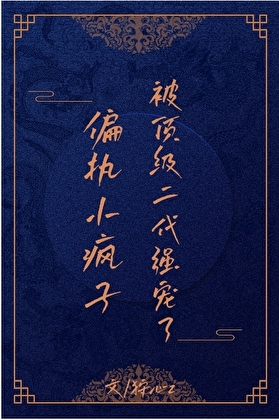 偏执小疯子
被顶级二代强宠了